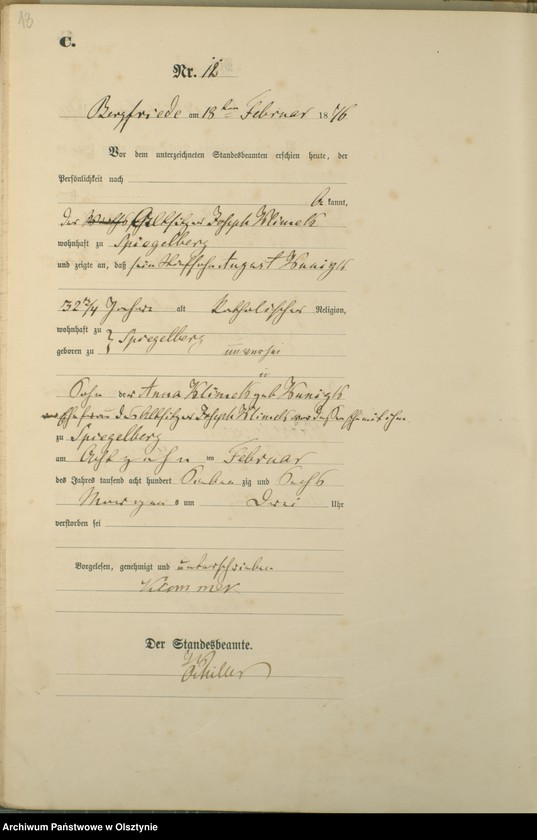 13
C.
Nr. 12
Bergfriede am 18ten Februar 1876
Vor dem unterzeichneten Standesbeamten erschien heute, der
Persönlichkeit nach
be kannt,
der Altsitzer Joseph Klimek
wohnhaft zu Spiegelberg
und zeigte an, daß sein Stiefsohn August Kunigk
32 3/4 Jahre alt katholischer Religion,
wohnhaft zu Spiegelberg
geboren zu unverhei
Sohn der Anna Klimek geb Kunigk
Ehefrau des Altsitzer Joseph Klimek vor dessen Ehe mit ihm
zu Spiegelberg
am Achtzehn ten Februar
des Jahres tausend acht hundert Sieben zig und Sechs
Morgens um Drei Uhr
verstorben sei
Vorgelesen, genehmigt und unterschrieben
Klommek
Der Standesbeamte.
Schiller
Archiwum Państwowe w Olsztynie